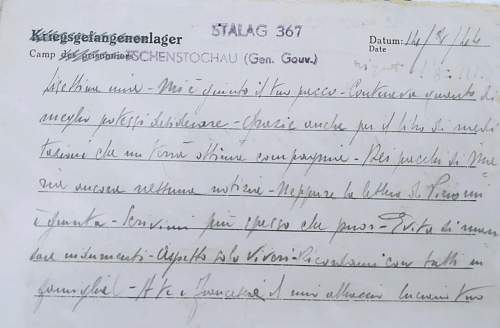 Kriegsgefangenenlager STALAG 367 Datum:
Camp des prisonniers TSCHENSTOCHAU (Gen. Gouv.) Date
mia - Mi è giunto il tuo pacco - Conteneva quanto di
meglio potessi desiderare - Grazie anche per il libro di medi
tazioni che mi terrà ottima compagnia - Dei pacchi di
ancora nessuna notizia - Neppure la lettera di Piero mi
è giunta - Scrivimi più spesso che puoi - Evita di man
dare indumenti - Aspetto solo viveri - Ricordami con tutti in
famiglia - A te e Francesca il mio abbraccio tuo